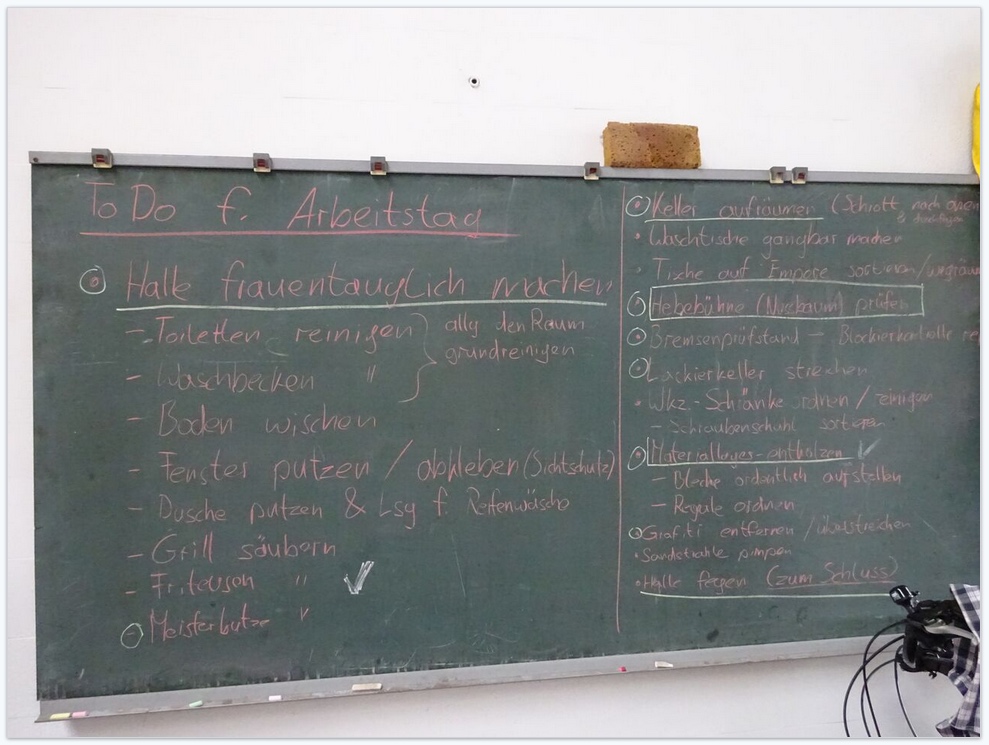 To Do f. Arbeitstag
Halle frauentauglich machen
- Toiletten reinigen
- Waschbecken "
allg den Raum
grundreinigen
- Boden wischen
- Fenster putzen / abkleben (Sichtschutz)
- Dusche putzen & Lsg f. Reifenwäsche
- Grill säubern
- Friteuson "
Meisterbutze "
Keller aufräumen (Schrott, nach oben
Waschtische gangbar machen
Tische auf Empore sortieren/
Hebebühne (Nussbaum) prüfen
Bremsenprüfstand - Blockierkontrolle
Lackierkeller streichen
Wkz.-Schränke ordnen / reinigen
- sortieren
Materiallager entholzen
- Bleche ordentlich aufstellen
- Regale ordnen
Grafiti entfernen / überstreichen
Sandstrahle pimpen
Halle fegen (zum Schluss)